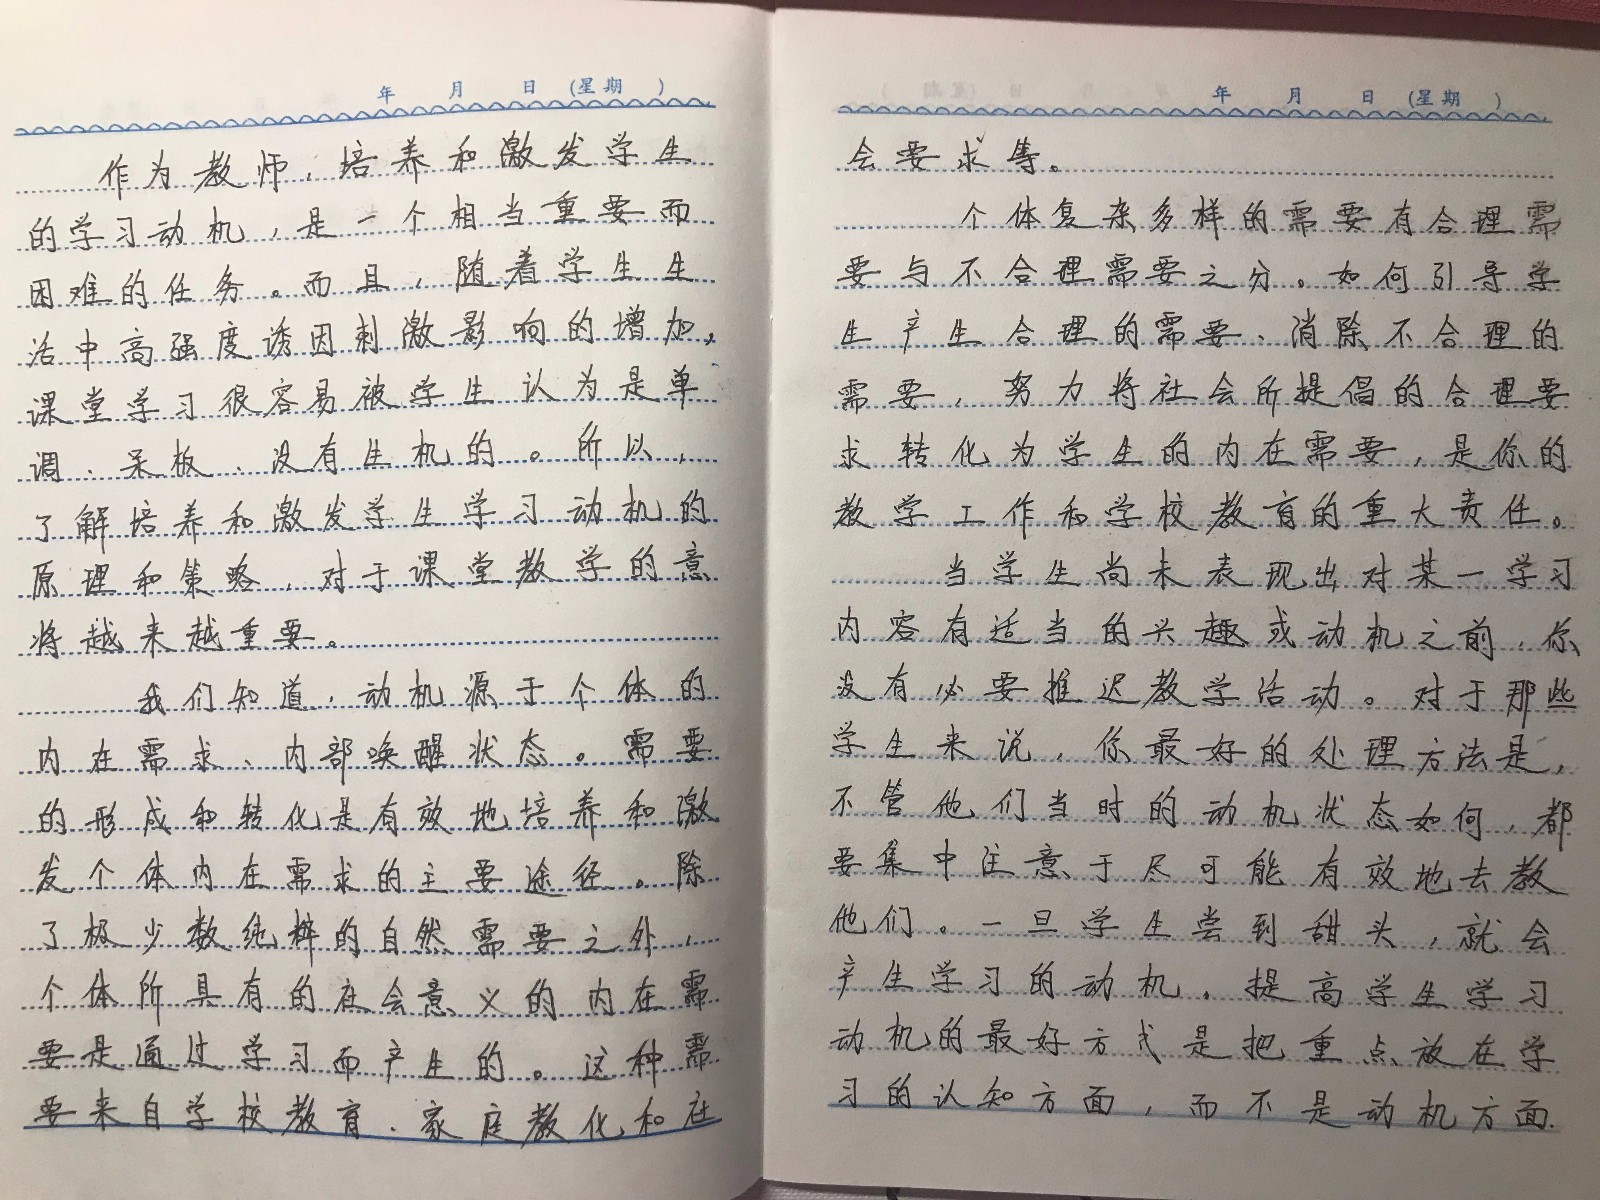 年 月 日 (星期 )
作为教师,培养和激发学生
的学习动机,是一个相当重要而
困难的任务。而且,随着学生生
活中高强度诱因刺激影响的增加,
课堂学习很容易被学生认为是单
调、呆板、没有生机的。所以,
了解培养和激发学生学习动机的
原理和策略,对于课堂教学的意
将越来越重要。
我们知道,动机源于个体的
内在需求、内部唤醒状态。需要
的形成和转化是有效地培养和激
发个体内在需求的主要途径。除
了极少数纯粹的自然需要之外,
个体所具有的社会意义的内在需
要是通过学习而产生的。这种需
要来自学校教育、家庭教化和社
年 月 日 (星期 )
会要求等。
个体复杂多样的需要有合理需
要与不合理需要之分。如何引导学
生产生合理的需要、消除不合理的
需要,努力将社会所提倡的合理要
求转化为学生的内在需要,是你的
教学工作和学校教育的重大责任。
当学生尚未表现出对某一学习
内容有适当的兴趣或动机之前,你
没有必要推迟教学活动。对于那些
学生来说,你最好的处理方法是,
不管他们当时的动机状态如何,都
要集中注意于尽可能有效地去教
他们。一旦学生尝到甜头,就会
产生学习的动机。提高学生学习
动机的最好方式是把重点放在学
习的认知方面,而不是动机方面.